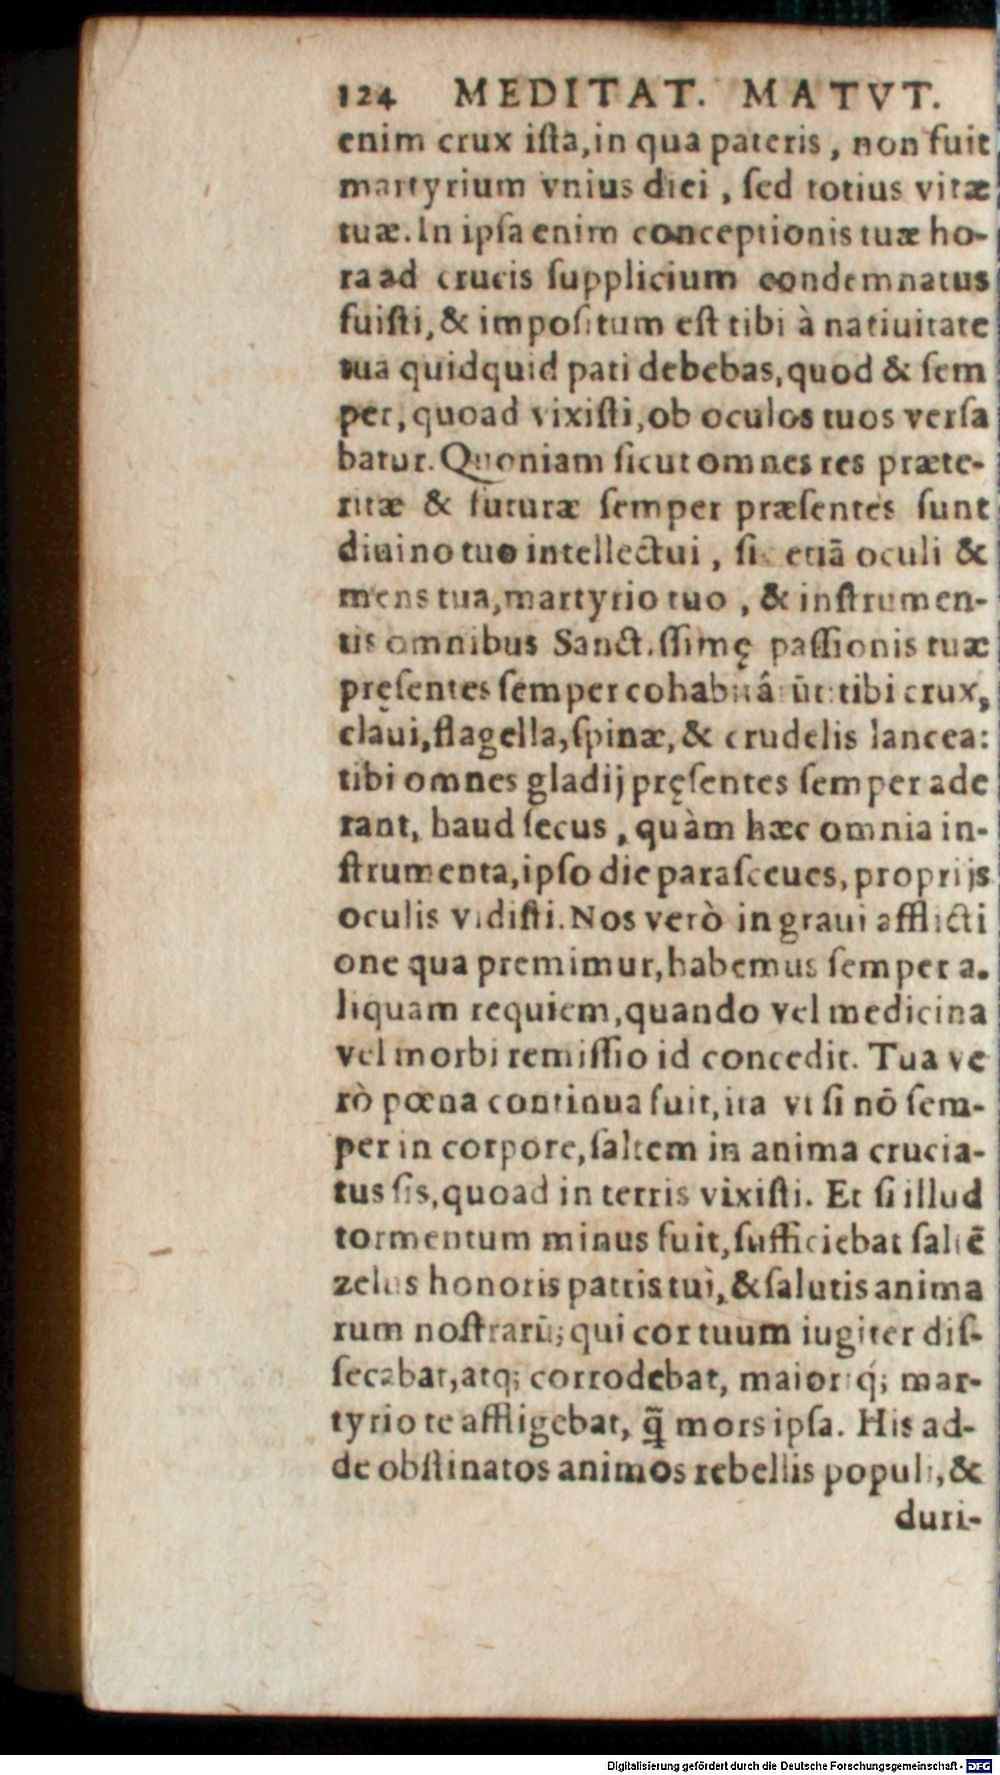 124 MEDITAT. MATVT.
enim crux iſta, in qua pateris, non fuit
martyrium vnius diei, ſed totius vitæ
tuæ. In ipſa enim conceptionis tuæ ho-
ra ad crucis ſupplicium condemnatus
fuiſti, & impoſitum eſt tibi à natiuitate
tua quidquid pati debebas, quod & ſem
per, quoad vixiſti, ob oculos tuos verſa
batur. Quoniam ſicut omnes res præte-
ritæ & futuræ ſemper præſentes ſunt
diuino tuo intellectui, ſic etiā oculi &
mens tua, martyrio tuo, & inſtrumen-
tis omnibus Sanctiſſimę paſſionis tuæ
pręſentes ſemper tibi crux,
claui, flagella, ſpinæ, & crudelis lancea:
tibi omnes gladij pręſentes ſemper ade
rant, haud ſecus, quàm hæc omnia in-
ſtrumenta, ipſo die paraſceues, proprijs
oculis vidiſti. Nos verò in graui afflicti
one qua premimur, habemus ſemper a-
liquam requiem, quando vel medicina
vel morbi remiſſio id concedit. Tua ve
rò pœna continua fuit, ita vt ſi nō ſem-
per in corpore, ſaltem in anima crucia-
tus ſis, quoad in terris vixiſti. Et ſi illud
tormentum minus fuit, ſufficiebat ſaltē
zelus honoris patris tui, & ſalutis anima
rum noſtrarū; qui cor tuum iugiter diſ-
ſecabat, atq; corrodebat, maioriq́; mar-
tyrio te affligebat, q̃ mors ipſa. His ad-
de obſtinatos animos rebellis populi, &
duri-
Digitalisierung gefördert durch die Deutsche Forschungsgemeinschaft - DFG